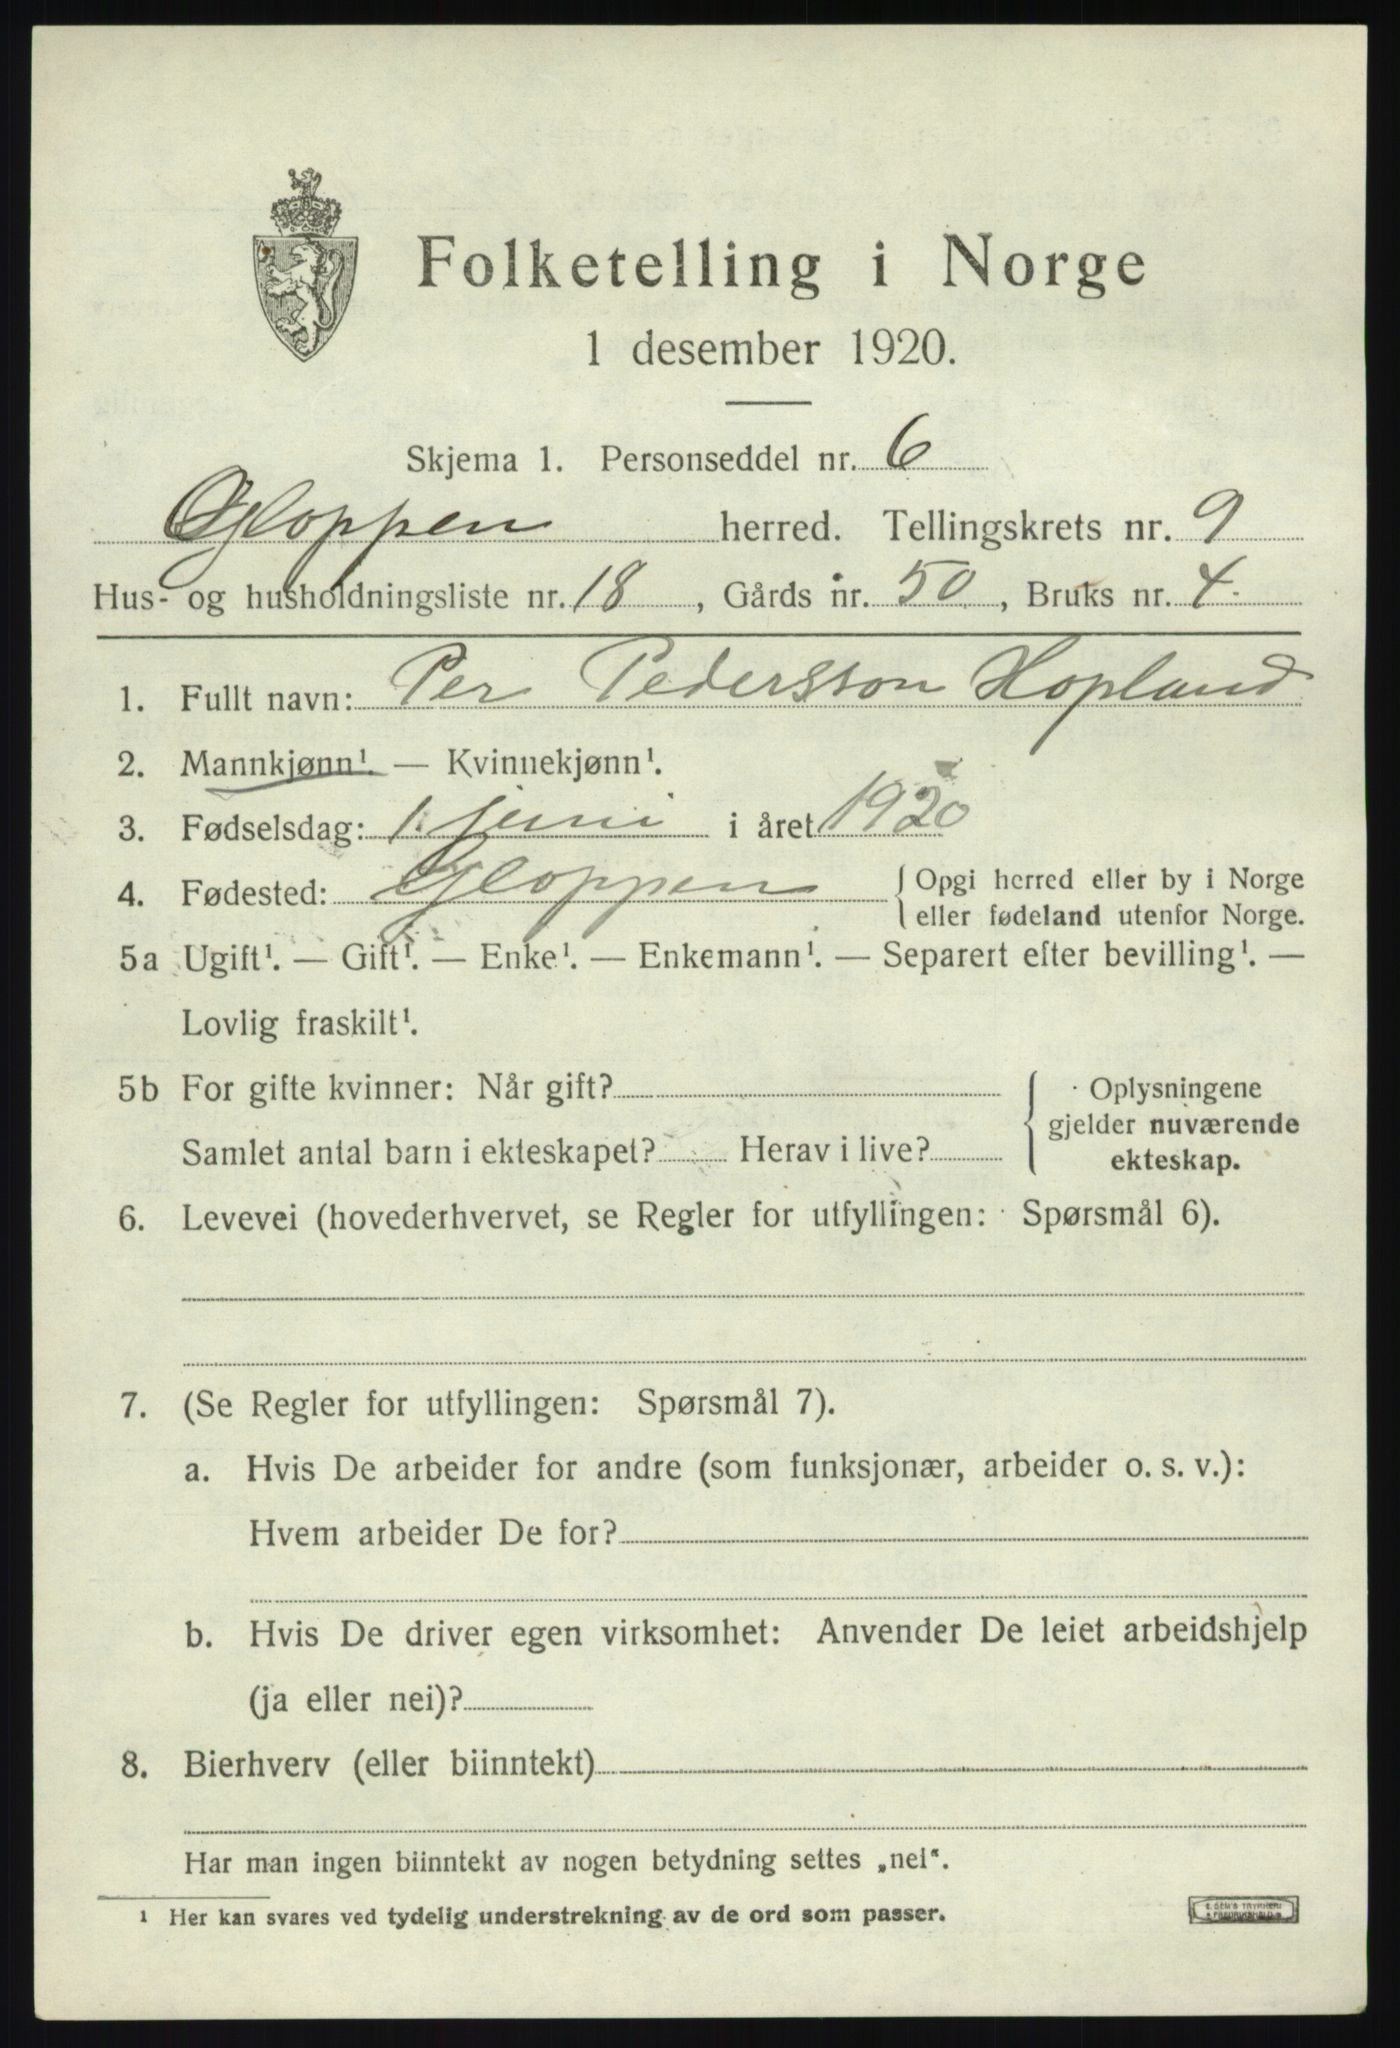 Folketelling i Norge
1 desember 1920.
Skjema 1. Personseddel nr. 6
Gloppen herred. Tellingskrets nr. 9
Hus- og husholdningsliste nr. 18, Gårds nr. 50, Bruks nr. 4.
1. Fullt navn: Per Pedersson Hopland
2. Mannkjønn¹. — Kvinnekjønn¹.
3. Fødselsdag: 1. juni i året 1920
4. Fødested: Gloppen { Opgi herred eller by i Norge
eller fødeland utenfor Norge.
5a Ugift¹. — Gift¹. — Enke¹. — Enkemann¹. — Separert efter bevilling¹. —
Lovlig fraskilt¹.
5b For gifte kvinner: Når gift? { Oplysningene
gjelder nuværende
Samlet antal barn i ekteskapet? Herav i live? ekteskap.
6. Levevei (hovederhvervet, se Regler for utfyllingen: Spørsmål 6).
7. (Se Regler for utfyllingen: Spørsmål 7).
a. Hvis De arbeider for andre (som funksjonær, arbeider o. s. v.):
Hvem arbeider De for?
b. Hvis De driver egen virksomhet: Anvender De leiet arbeidshjelp
(ja eller nei)?
8. Bierhverv (eller biinntekt)
Har man ingen biinntekt av nogen betydning settes „nei“.
¹ Her kan svares ved tydelig understrekning av de ord som passer.